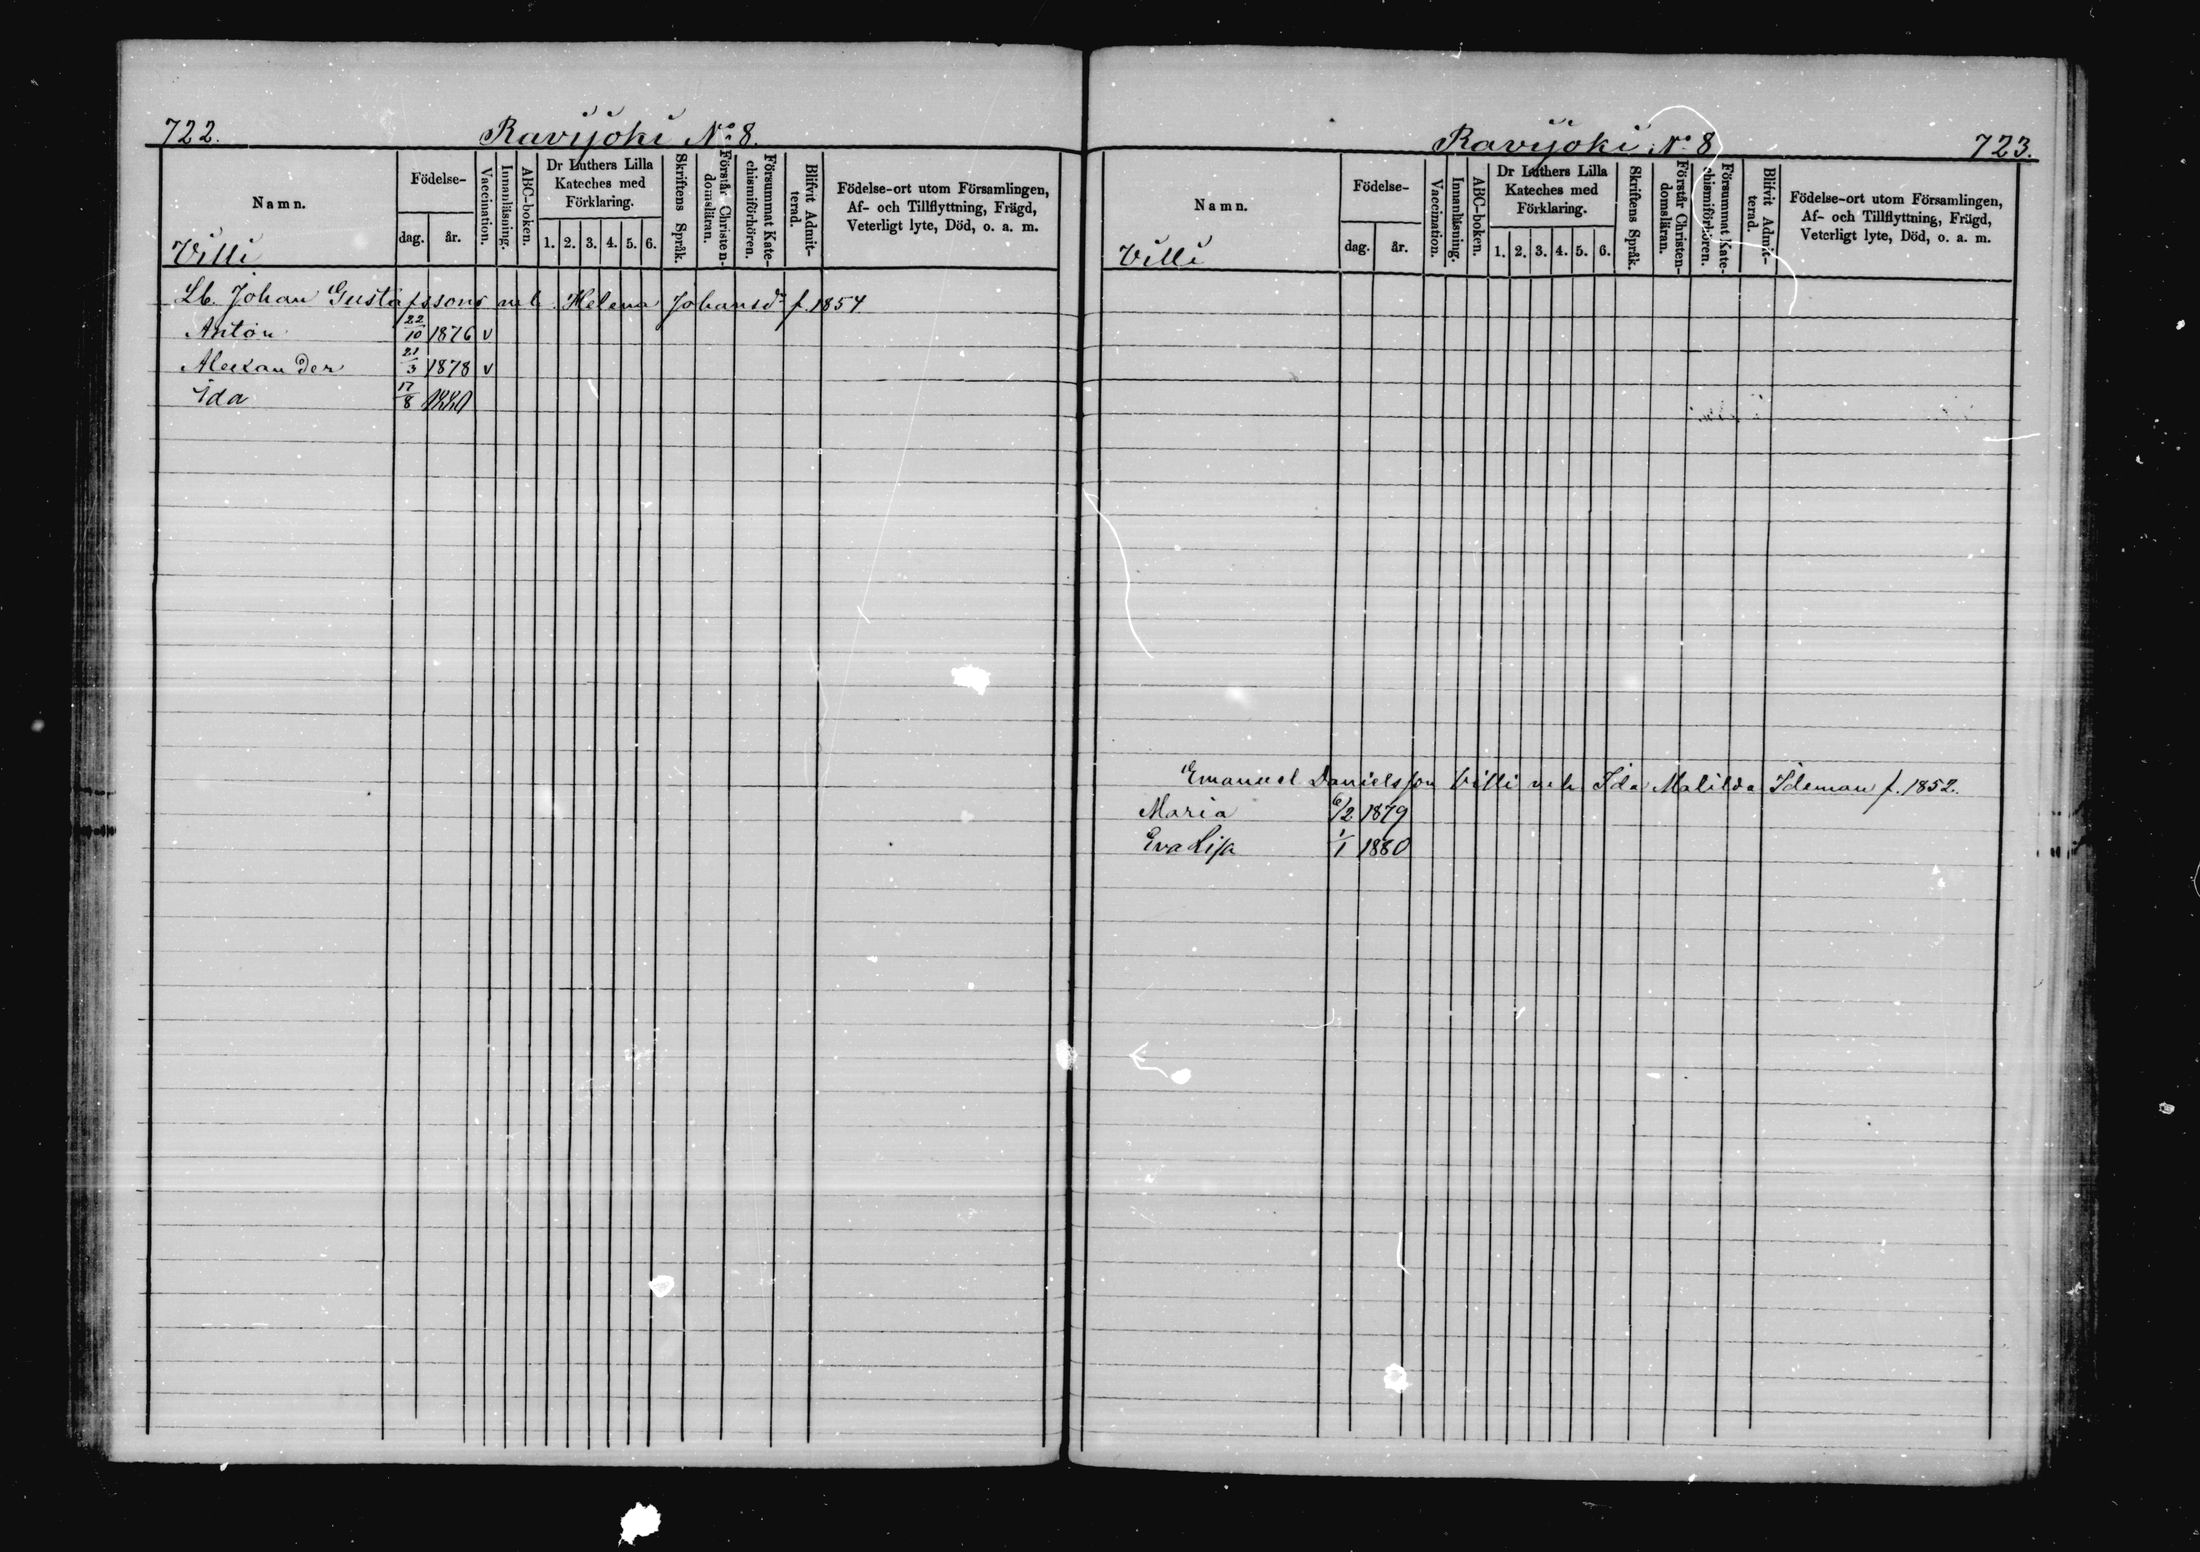 722. Ravijoki No 8.
Namn. Födelse- dag. år. Vaccination. Innanläsning. ABC-boken. Dr Luthers Lilla Kateches med Förklaring. 1. 2. 3. 4. 5. 6. Skriftens Språk. Förstår Christendomsläran. Försummat Katechismiförhören. Blifvit Admitterad. Födelse-ort utom Församlingen, Af- och Tillflyttning, Frägd, Veterligt lyte, Död, o. a. m.
Villi
Lb. Johan Gustafssons o. h. Helena Johansdr f. 1854
Anton 22/10 1876 v
Alexander 21/3 1878 v
Ida 17/8 1880
Ravijoki No 8 723.
Namn. Födelse- dag. år. Vaccination. Innanläsning. ABC-boken. Dr Luthers Lilla Kateches med Förklaring. 1. 2. 3. 4. 5. 6. Skriftens Språk. Förstår Christendomsläran. Försummat Katechismiförhören. Blifvit Admitterad. Födelse-ort utom Församlingen, Af- och Tillflyttning, Frägd, Veterligt lyte, Död, o. a. m.
Villi
Emanuel Danielsson Villi o. h. Ida Matilda Ideman f. 1852.
Maria 6/2 1879
Eva Lisa 1/1 1880